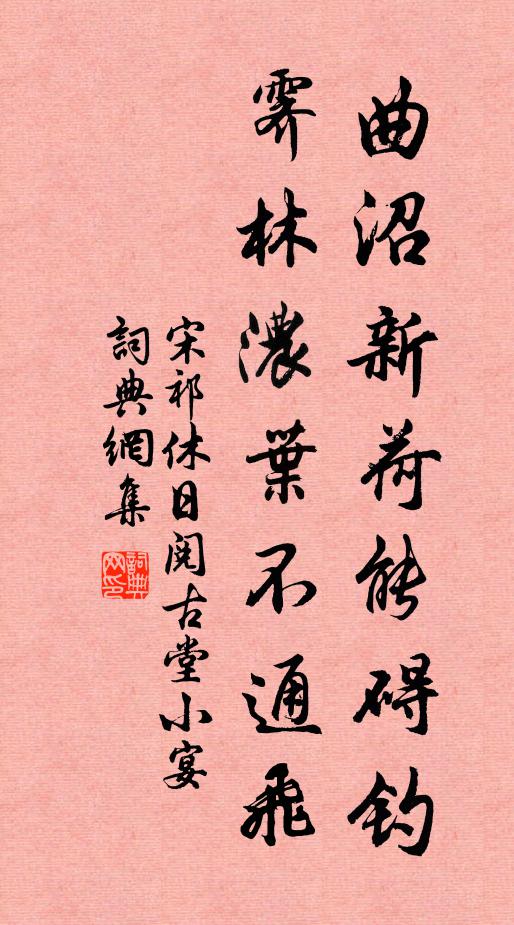 曲沼新荷能碍钓
霁林濃葉不通飛
宋祁休日阅古堂小宴
詞典網集
詞典网印